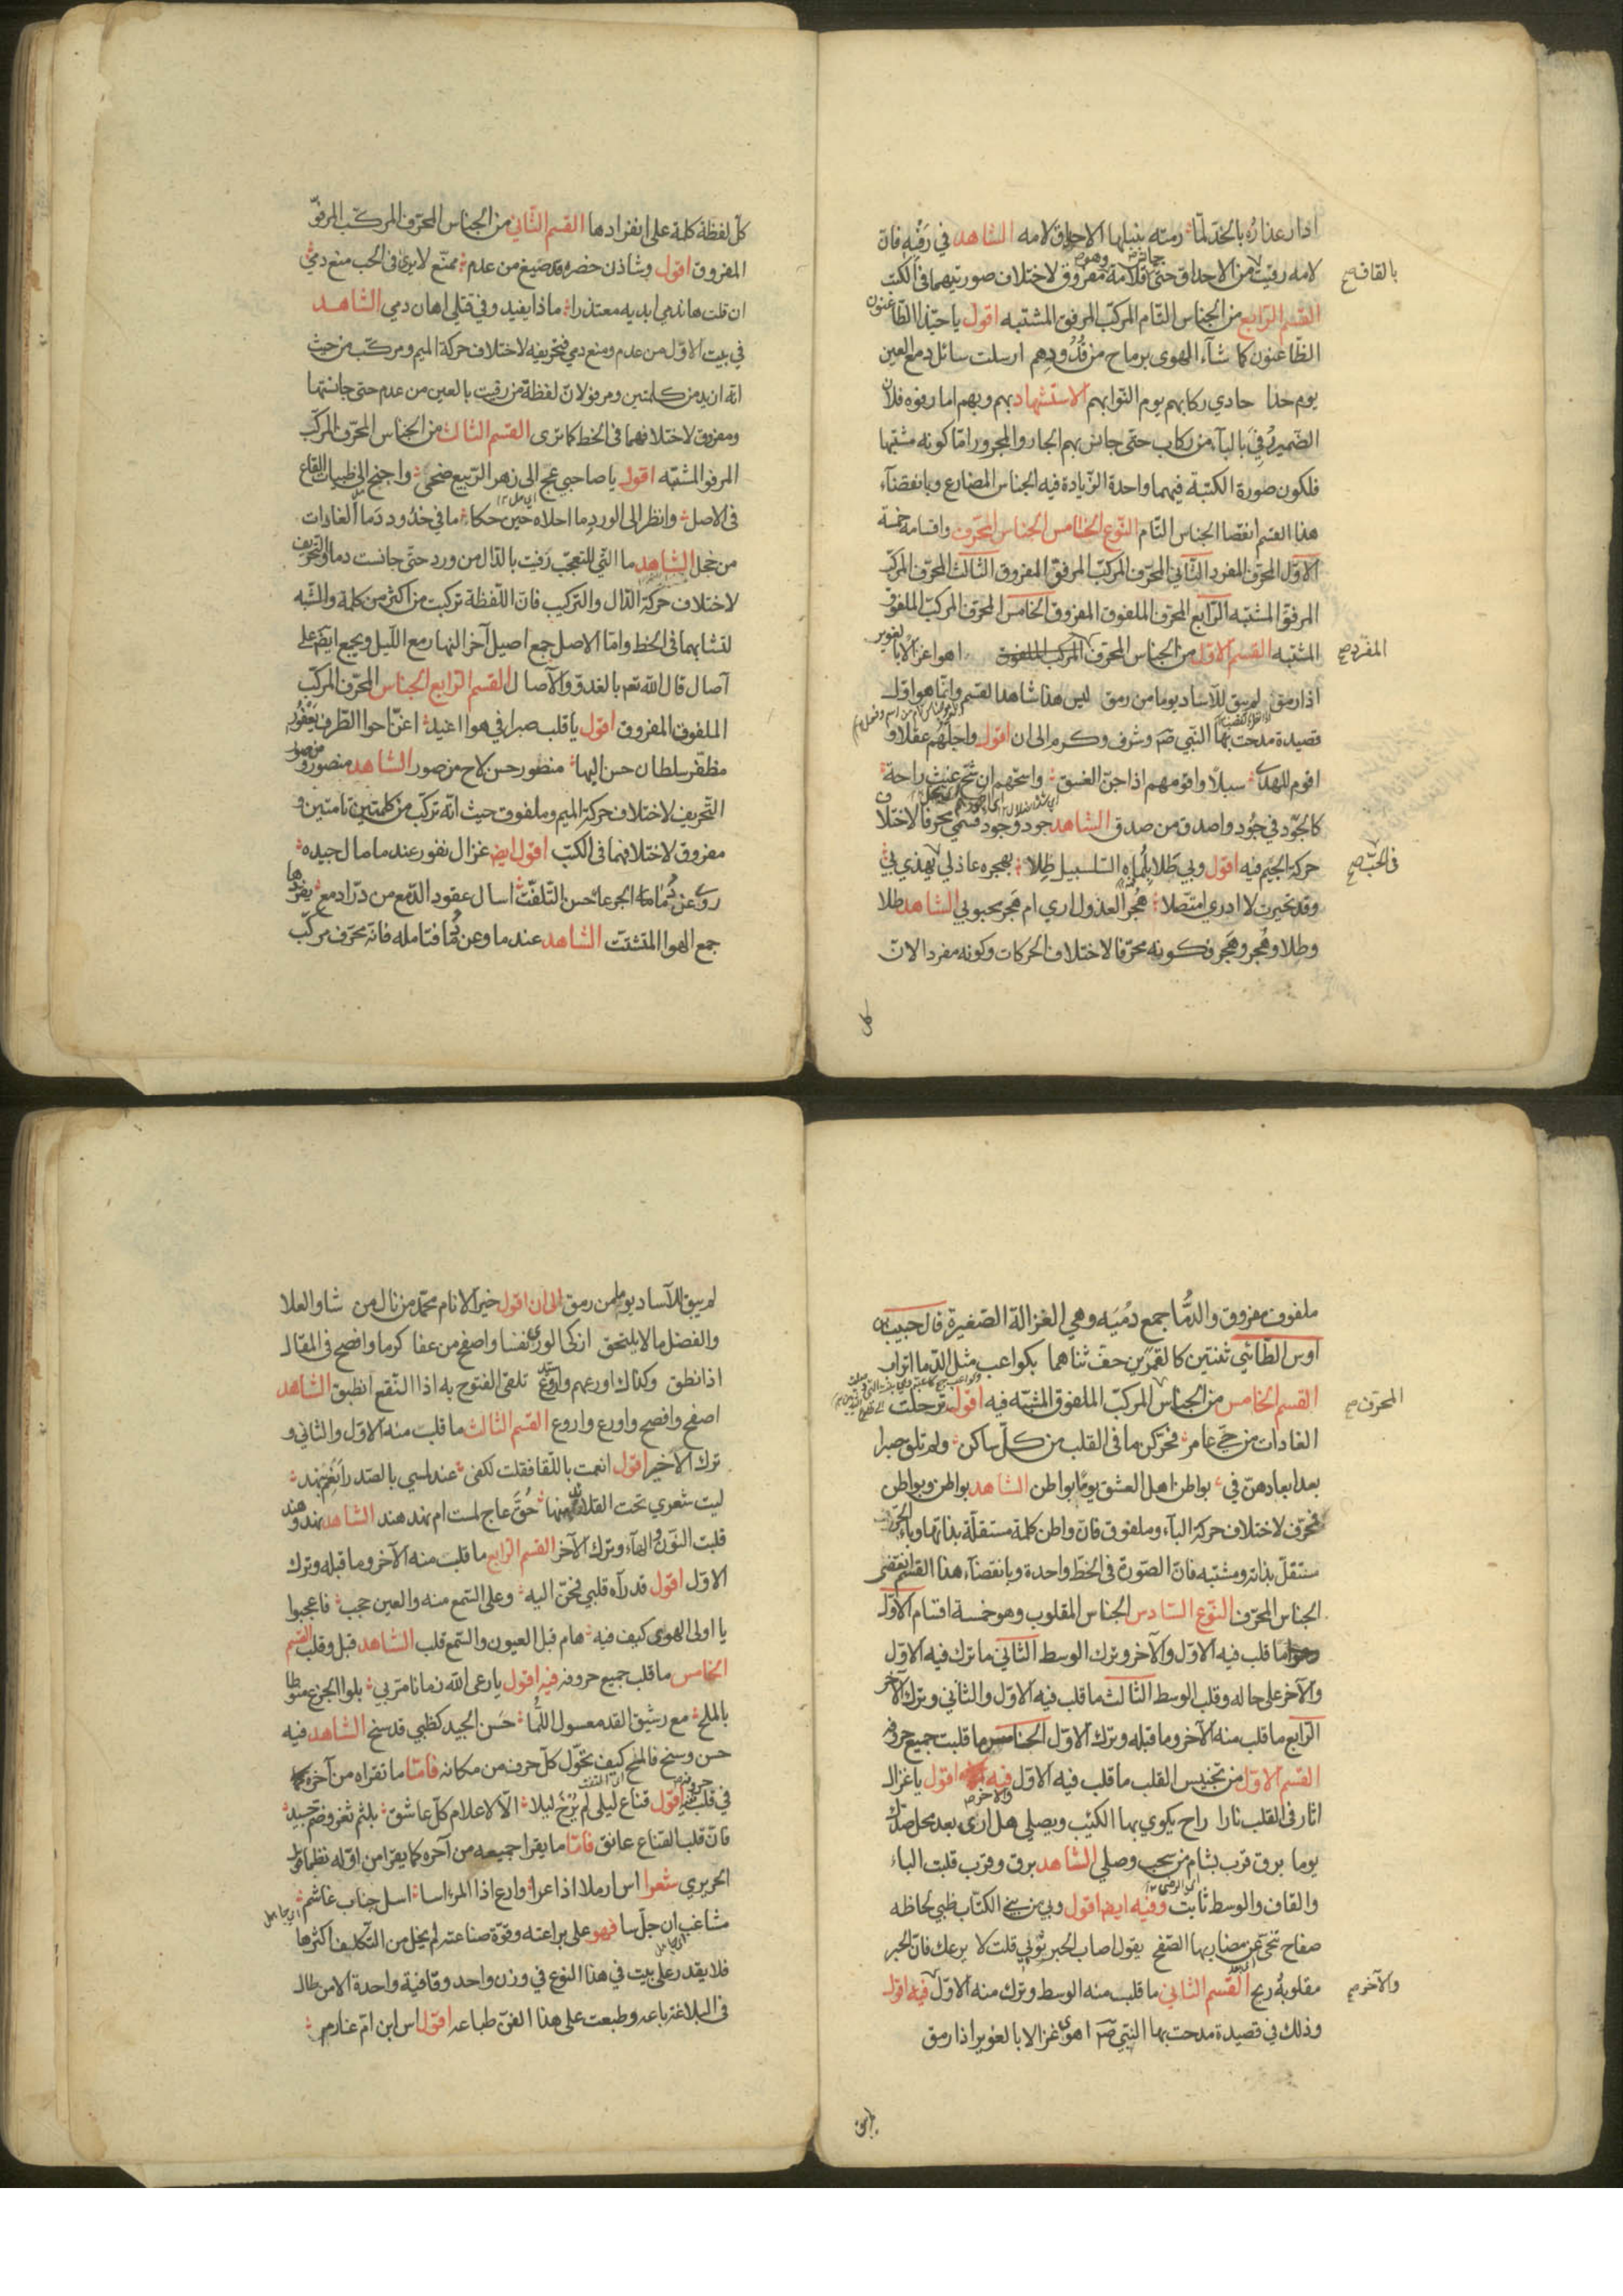 اذا رعذاره بالخدّ لمّا رمته بنبلها الاحداق لامه الشاهد في رَقْبِهِ فانّ
لامه رقيت من الاحداق حتى فلامه مفروق لاختلاف صورتيهما فى الكتب
بالقاف صح
القسم الرّابع من الجناس التام المركب المرفق المشتبه اقول يا حبّذا الظاعنون
الظاعنون كما شآء الهوى برماح من قُدُودِهِم ارسلت سائل دمع العين
يوم حذا حادي ركابهم يوم النوابهم الاستشهاد بهم وبهم اما رفوه فلانّ
الضمير فى بالبآء من ركاب حتى جانس بهم الجار والمجرور امّا كونه مشتبها
فلكون صورة الكتبة فيهما واحدة الزيادة فيه الجناس المضارع وبانقضآء
هذا القسم انقضا الجناس التام النّوع الخامس الجناس المحرّف واقسامه خمسة
الاوّل المحرّف المفرد الثّاني المحرّف المركب المرفو المفروق الثّالث المحرّف المركّب
المرفو المشتبه الرّابع المحرّف الملفوق المفروق الخامس المحرّف المركب الملفوق
المشتبه القسم الاوّل من الجناس المحرّف اهوا غزالا بالغوير
المفرد صح
اذا رمق لم يبق للآساد يوما من رمق ليس هذا شاهدا لقسم وانّما هو اوّل
قصيدة مدحت بها النّبي صم وشرف وكرم الى ان اقول واجلّهم عقلا و
اقوم للهدى سبلا واقومهم اذا جنّ الغسق واسمّهم ان شحّ غيث راحة
كالجود في جُود واصدق من صدق الشاهد جود وجود فسمّي محرفا لاختلا
حركة الجيم فيه اقول وبي طَلا بلماه السلسبيل طِلا بهجره عاذلي يهذي بي
فى الحبّ صح
وقد تحيرت لا ادري امتصلا هُجر العذول اري ام هَجر محبوبي الشاهد طلا
وطلا وهُجر وهَجر فكونه محرّفا لاختلاف الحركات وكونه مفردا لانّ
كل
كلّ لفظة كلمة على انفرادها القسم الثّاني من الجناس المحرّف المركّب المرفوّ
المفروق اقول وشاذن خضره قد صَيغ من عدم ممنّع لا يرى فى الحب منع دمي
ان قلت هاندمي ابديه معتذرا ماذا يفيد وفي قتلي اهان دمي الشاهد
في بيت الاوّل من عدم ومنع دمي فتحريفه لاختلاف حركة الميم ومركّب من حيث
انّه ان يد من كلمتين ومرفو لانّ لفظة من رقيت بالعين من عدم حتى جانستها
ومفروق لاختلافهما فى الخط كما ترى القسم الثالث من الجناس المحرّف المركّب
المرفو المشتبه اقول يا صاحبي عج الى زهر الرّبيع ضحى واجنح الى ظبيات القاع
فى الاصل وانظر الى الورد ما احلاه حين حكا ما في خدود دَما الغادات
من خجل الشاهد ما الّتي للتعجّب رقيت بالدّال من ورد حتّى جانست دما والتحريف
لاختلاف حركة الدّال والتركيب فانّ اللّفظة تركبت من اكثر من كلمة والشبه
لتشابهما فى الخط وامّا الاصل جمع اصيل آخر النهار مع اللّيل ويجمع ايضا على
آصال قال الله تعم بالغدوّ والآصال القسم الرّابع الجناس المحرّف المركّب
الملفوق المفروق اقول يا قلب صبرا في هوا اغيد اغنّ احوا الطّرف يَعْفُور
مظفّر سلطان حسن اليها منظور حسن لاح من صور الشاهد منصور ومن صور
التّحريف لاختلاف حركة الميم وملفوق حيث انّه تركّب من كلمتين تامتين و
مفروق لاختلافهما فى الكتب اقول ايضا غزال نفور عند ما مال جيده
روى عن دُما الجرعاء حسن التلفّت اسال عقود الدّمع من درّ ادمع يفرّدها
جمع الهوا المتشتت الشاهد عند ما وعن دُما فتامله فانّه محرّف مركّب
ملفوق مفروق والدُّما جمع دُمْيَه وهي الغزالة الصّغيرة قال حبيب بن
اوس الطّائي ثنتين كالقمرين حفّ ثناهما بكواعب مثل الدّما اتراب
القسم الخامس من الجناس المركّب الملفوق المشبّه فيه اقول ترحلت
المحرّف صح
الغادات من حيّ عامر فحرّكن ما فى القلب من كلّ ساكن ولم تلق صبرا
بعد ابعادهنّ في بواطن اهل العشق يومًا بواطن الشاهد بواطن وبواطن
محرّف لاختلاف حركة البآء وملفوق فانّ واطن كلمة مستقلّة بذاتها وباء الجرّ
مستقلّ بذاته ومشتبه فانّ الصّورة فى الخطّ واحدة وبانقضآء هذا القسم انقضى
الجناس المحرّف النّوع السّادس الجناس المقلوب وهو خمسة اقسام الاوّل
ما قلب فيه الاوّل والآخر وترك الوسط الثّاني ما ترك فيه الاوّل
والآخر على حاله وقلب الوسط الثالث ما قلب فيه الاوّل والثّاني وترك الآخر
الرّابع ما قلب منه الآخر وما قبله وترك الاوّل الخامس ما قلبت جميع حروفه
القسم الاوّل من تجنيس القلب ما قلب فيه الاوّل والآخر فيه اقول يا غزالا
اثار فى القلب نارا راح يكوي بها الكئيب ويصلي هل ارى بعد محل صدّك
يوما برق قرب بشام من سحب وصلي الشاهد برق وقرب قلبت الباء
والقاف والوسط ثابت وفيه ايضا اقول وبي من بني الكتّاب ظبي لحاظه
صفاح تنحّى عن مضاربها الصّفح يقول اصاب الحبر ثوبي قلت لا يرعك فانّ الحبر
مقلوبهُ ربح القسم الثّاني ما قلب منه الوسط وترك منه الاوّل فيه اقول
والآخر صح
وذلك في قصيدة مدحت بها النّبي صم اهوى غزالا بالغوير اذا رمق
لم يبق
لم يبق للآساد يوما من رمق الى ان اقول خير الانام محمّد من نال من شاو العلا
والفضل ما لا يلتحق ازكى الورى نفسا واصفح من عفا كرما وافصح فى المقال
اذا نطق وكذاك اورعهم واروع تلقى الفتوح به اذا النّقع انطبق الشاهد
اصفح وافصح واورع واروع القسم الثالث ما قلبت منه الاوّل والثاني و
ترك الآخير اقول انعمت باللّقا فقلت لكفى عند لمسي بالصّدر نهد
ليت شعري تحت القلائد منها حُقّ عاج لمست ام نهد هند الشاهد نهد وهند
قلبت النّون والهآء وترك الآخر القسم الرّابع ما قلبت منه الآخر وما قبله وترك
الاوّل اقول قد رآه قلبي فحنّ اليه وعلى السّمع منه والعين حجب فاعجبوا
يا اولى الهوى كيف فيه هام قبل العيون والسّمع قلب الشاهد قبل وقلب القسم
الخامس ما قلب جميع حروفه فيه اقول يا رعى الله زمانا مرّ بي بلوا الجزع منوطا
بالملح مع رشيق القد معسول اللُّما حَسَن الجيد كظبي قد سنح الشاهد فيه
حسن وسنح فالمح كيف تحوّل كلّ حرف من مكانه فامّا ما تقراه من آخره
في قلب حروفه اقول قناع ليلى لم يُزَحْ ليلا الّا لاعلام كلّ عاشق بلثم ثغر وضم جيد
فانّ قلب القناع عانق فامّا ما يقرا جميعه من آخره كما يقرا من اوّله نظما قول
الحريري شعرا اس ارملا اذا عرا وارع اذا المرء اسا اسل جناب غاشم
مشاغب ان جلسا فهو على براعته وقوّة صناعته لم يخل من التّكليف اكثرها
فلا يقدر على بيت في هذا النوع في وزن واحد وقافية واحدة الا من طال
فى البلاغة باعه وطبعت على هذا الفنّ طباعه اقول اس ابن امّ عنارم